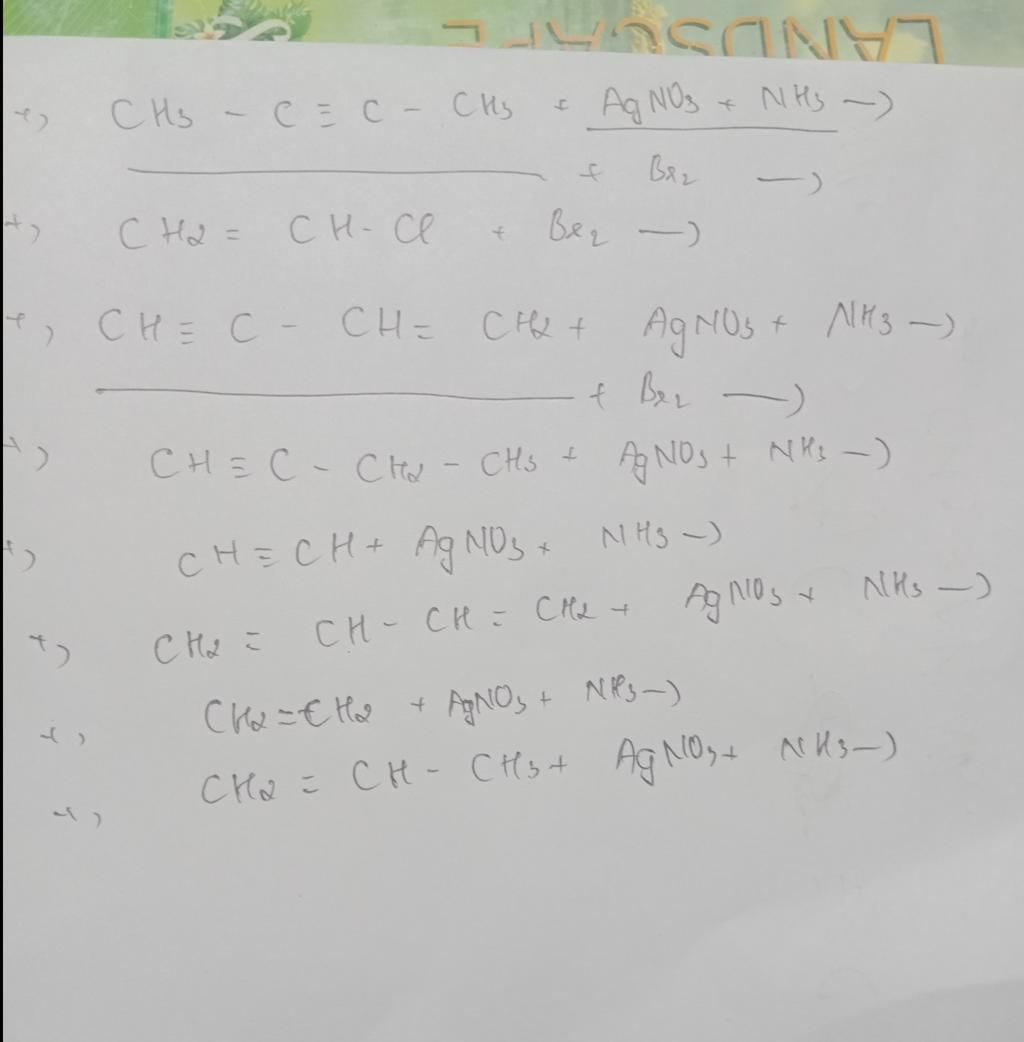 LANDSCAPE
+, CH3 - C ≡ C - CH3 + AgNO3 + NH3 →
+ Br2 →
+, CH2 = CH - Cl + Br2 →
+, CH ≡ C - CH = CH2 + AgNO3 + NH3 →
+ Br2 →
+, CH ≡ C - CH2 - CH3 + AgNO3 + NH3 →
+, CH ≡ CH + AgNO3 + NH3 →
+, CH2 = CH - CH = CH2 + AgNO3 + NH3 →
+, CH2 = CH2 + AgNO3 + NH3 →
+, CH2 = CH - CH3 + AgNO3 + NH3 →